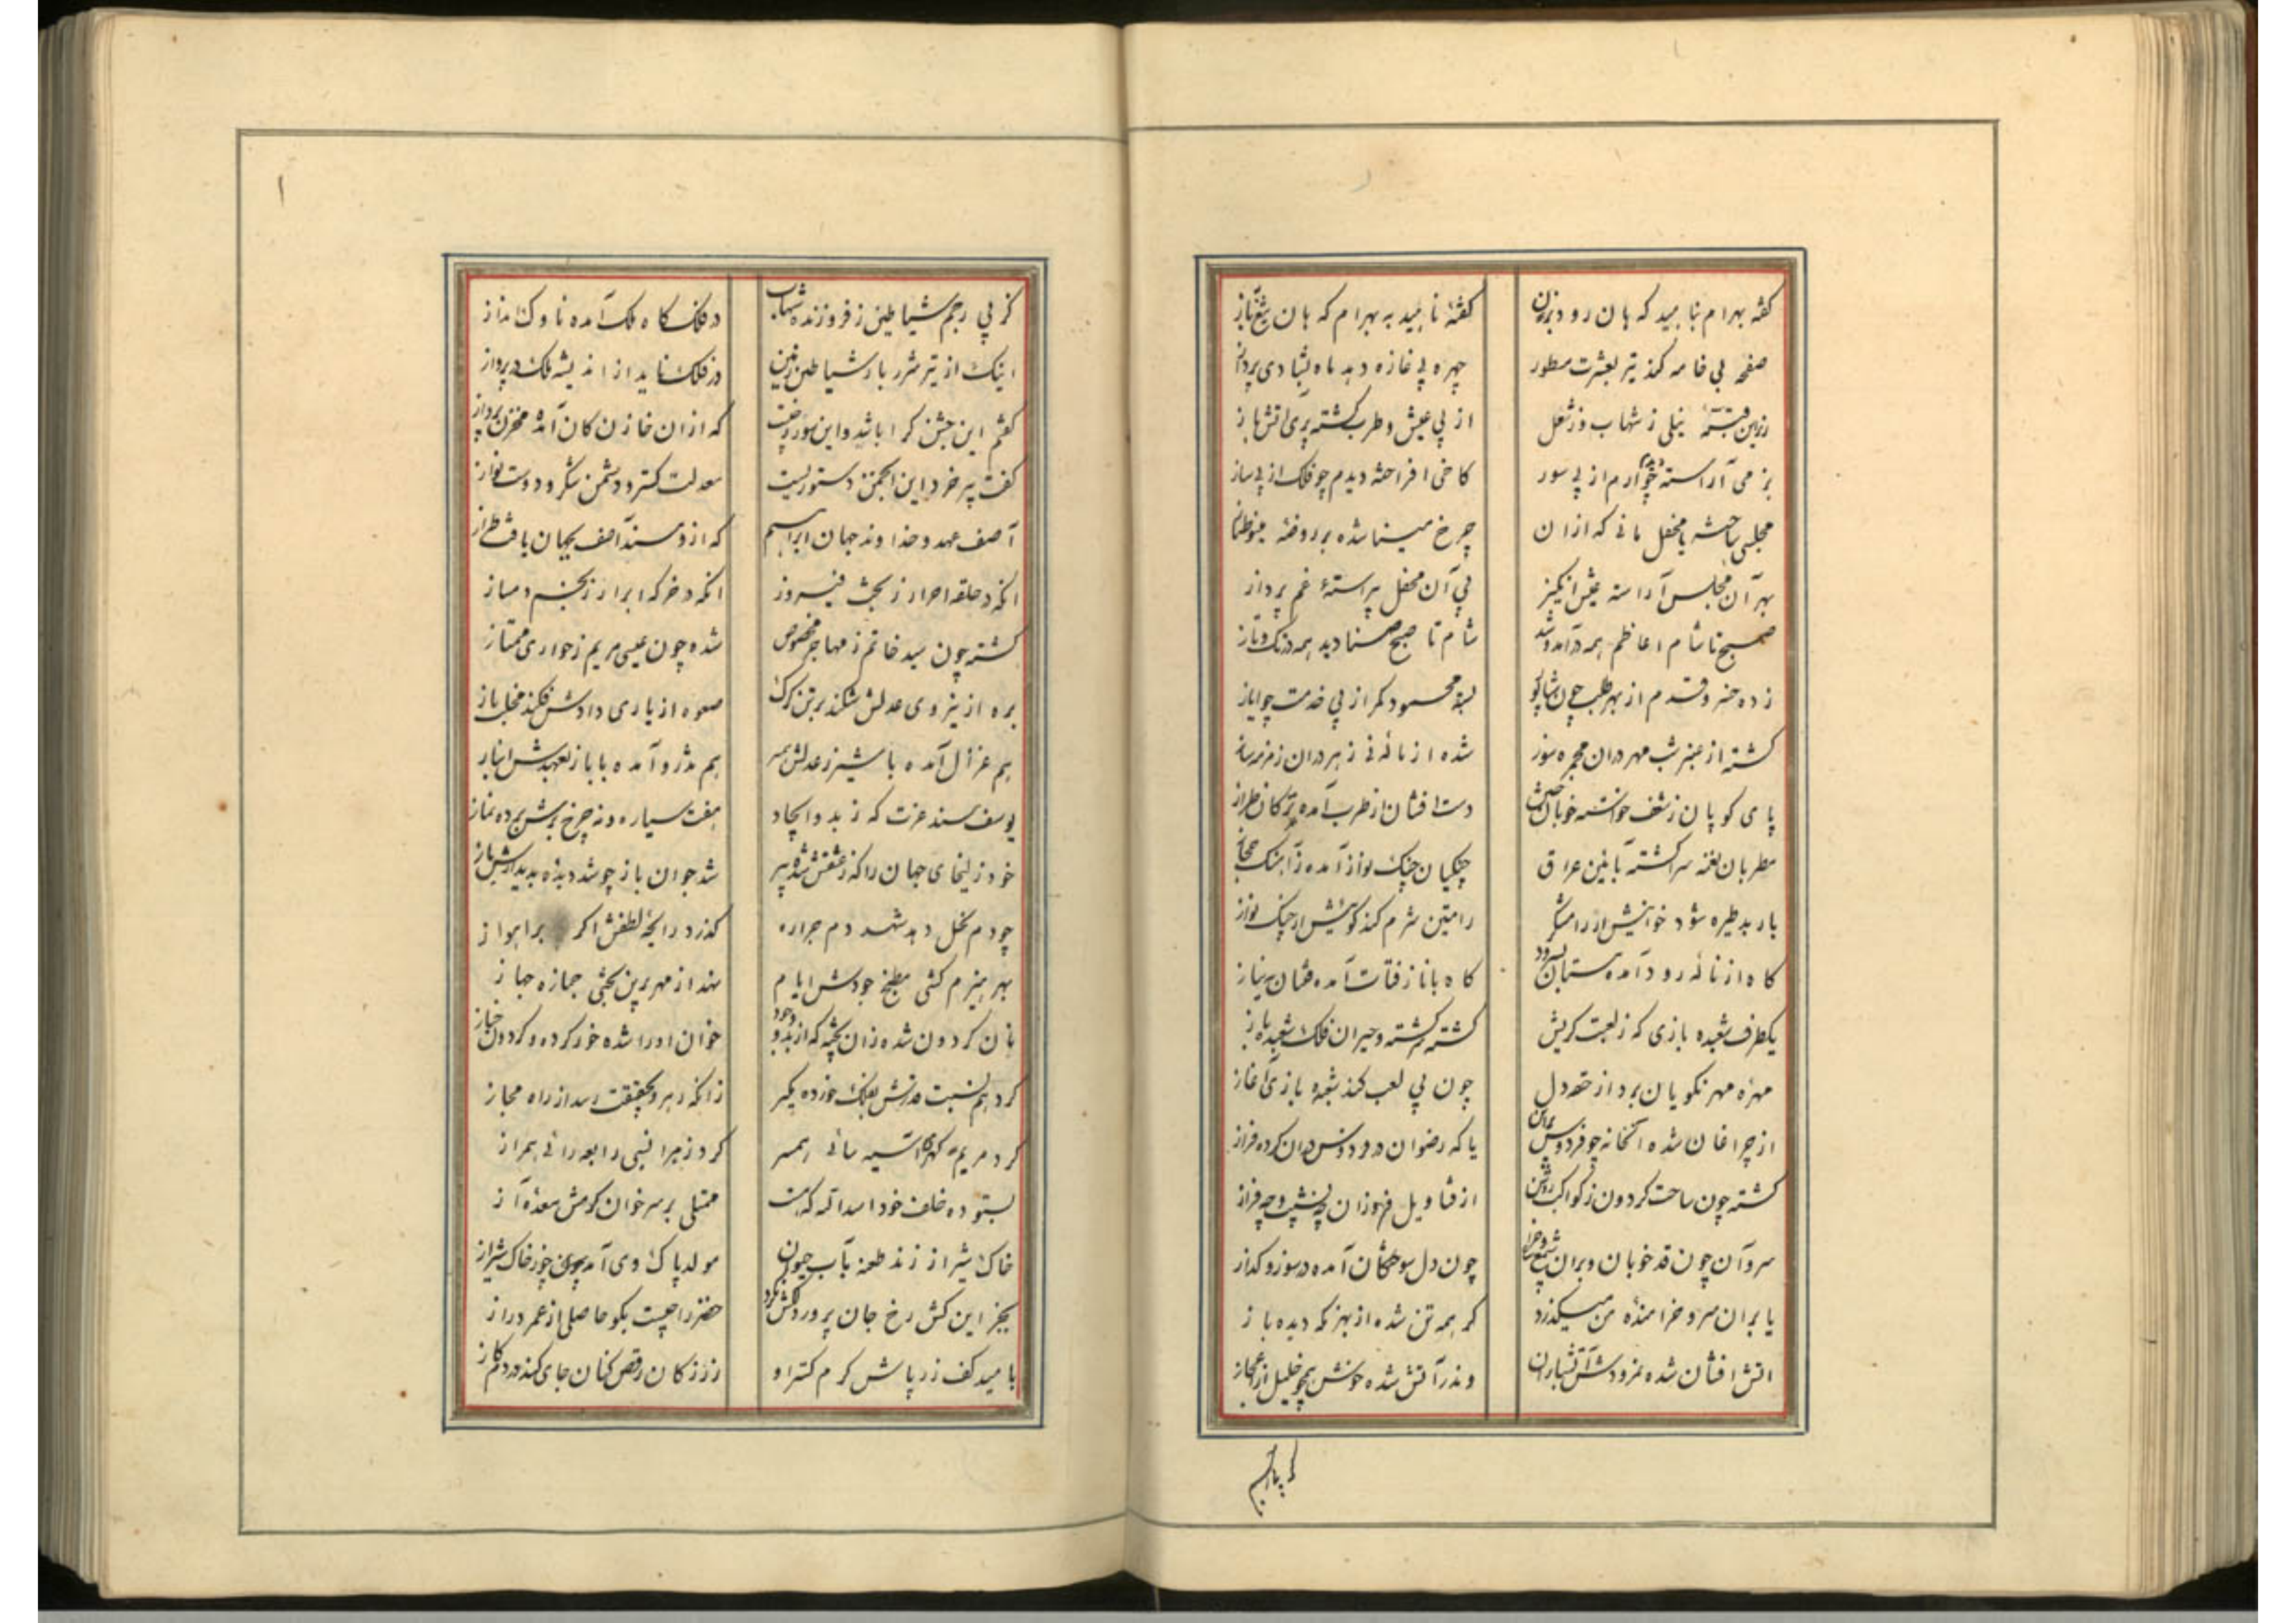 کفته بهرام بناهید که هان رود بزن
کفته ناهید به بهرام که هان تیغ
صفحه بی خامه کند تیر بعشرت مسطور
چهره بی غازه دهد ماه بشادی پرداز
نیلی ز شهاب وز شعل
از پی عیش و طرب کشته
بزمی آراسته چو ارم از پی سور
کاخی افراخته دیدم چو فلک از پی ساز
مجلسی محفل مانی که از ان
چرخ مینا شده بر روضه مینو طناز
بهر آن مجلس آراسته عیش انکیز
پی آن محفل پیراسته غم پرداز
صبح تا شام اعاظم همه در آمد و شد
شام تا صبح صنادید همه در تک و تاز
زده خسرو قدم از بهر طلب چون شاپور
بسته محمود کمر از پی خدمت چو ایاز
کشته از عنبر شب مهر در ان مجمره سوز
شده از ناله نی زهره در ان زمزمه ساز
پای کوبان ز شعف خواسته خوبان
دست افشان از طرب آمده ترکان طراز
مطربان نغمه سرا کشته بآیین عراق
چنکیان چنک نواز آمده ز آهنک حجاز
باربد طیره شود خوانیش ار رامشکر
رامتین شرم کند کوئیش ار چنک نواز
کاه از ناله رود آمده مستان بسرود
کاه با نازفتات آمده به نیاز
یکطرف شعبده بازی که ز لعبت کریش
کشته سرکشته و حیران فلک شعبده باز
مهره مهر نکویان برد از حقه دل
چون پی لعب کند شعبده بازی آغاز
از چراغان شده آنخانه چو فردوس برین
یا که رضوان در فردوس در ان کرده فراز
کشته چون ساحت کردون ز کواکب روشن
از قنادیل فروزان چه نشیب و چه فراز
سرو آن چون قد خوبان و بران شمع
چون دل سوختکان آمده در سوز و کداز
یا بران سرو خرامنده من میکذرد
کر همه تن شده از بهر نکه دیده باز
آتش افشان شده نمرودش آتشباران
وندر آتش شده خوش همچو خلیل از اعجاز
کز پی رجم
کز پی رجم شیاطین ز فروزنده شهاب
در فلک کاه ملک آمده ناوک انداز
اینک از تیر شرر بار شیاطین زمین
در فلک ناید از اندیشه ملک در پرواز
کفتم این جشن کرا باشد و این سور
که از ان خازن کان آمده مخزن پرداز
کفت پیر خرد این انجمن دستوریست
معدلت کستر و دشمن شکر و دوست نواز
آصف عهد و خداوند جهان ابراهیم
که ازو مسند آصف بجهان یافت طراز
آنکه در حلقه احرار ز بخت فیروز
آنکه در خرکه ابرار ز بخت دمساز
کشته چون سید خاتم ز مهاجر مخصوص
شده چون عیسی مریم ز حواری ممتاز
بره از نیروی عدلش شکند برتن کرک
صعوه از یاری دادش فکند مخلب باز
هم غزال آمده با شیر ز عدلش همسر
هم تذرو آمده با باز بعهدش انباز
یوسف مسند عزت که ز بدو ایجاد
هفت سیاره و نه چرخ برش برده نماز
خود زلیخای جهان را که ز عشقش شده پیر
شد جوان باز چو شد دیده بدیدارش باز
چو دم نحل دهد شهد دم جراره
کذرد رایحه لطفش اکر بر اهواز
بهر هیزم کشی مطبخ جودش ایام
نهد از مهر برین بختی جمازه جهاز
نان کردون شده زان پخته که از بدو وجود
خوان او را شده خور کرده و کردون خباز
کرد هم نسبت قدرش بفلک خورده مکیر
زانکه رهرو بحقیقت رسد از راه مجاز
کرد مریم آسیه سانی همسر
کرد زهرا نسبی رابعه رائی همراز
بستوده خلف خود اسدالله که هست
ممتلی بر سر خوان کرمش معده آز
خاک شیراز زند طعنه بآب حیوان
مولد پاک وی آمد چو خاک شیراز
بجز این کش رخ جان پرور
خضر را چیست بکو حاصلی از عمر دراز
بامید کف زرپاش کرم کستر او
زر ز کان رقص کنان جای کند در دم کاز